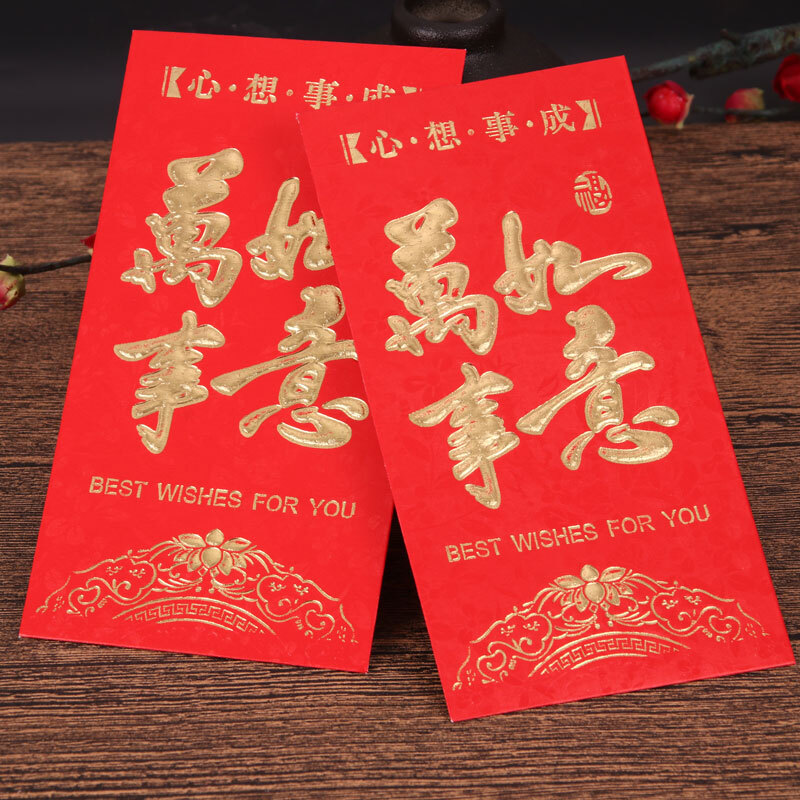 【心·想·事·成】
萬如
事意
BEST WISHES FOR YOU
【心·想·事·成】
福
萬如
事意
BEST WISHES FOR YOU